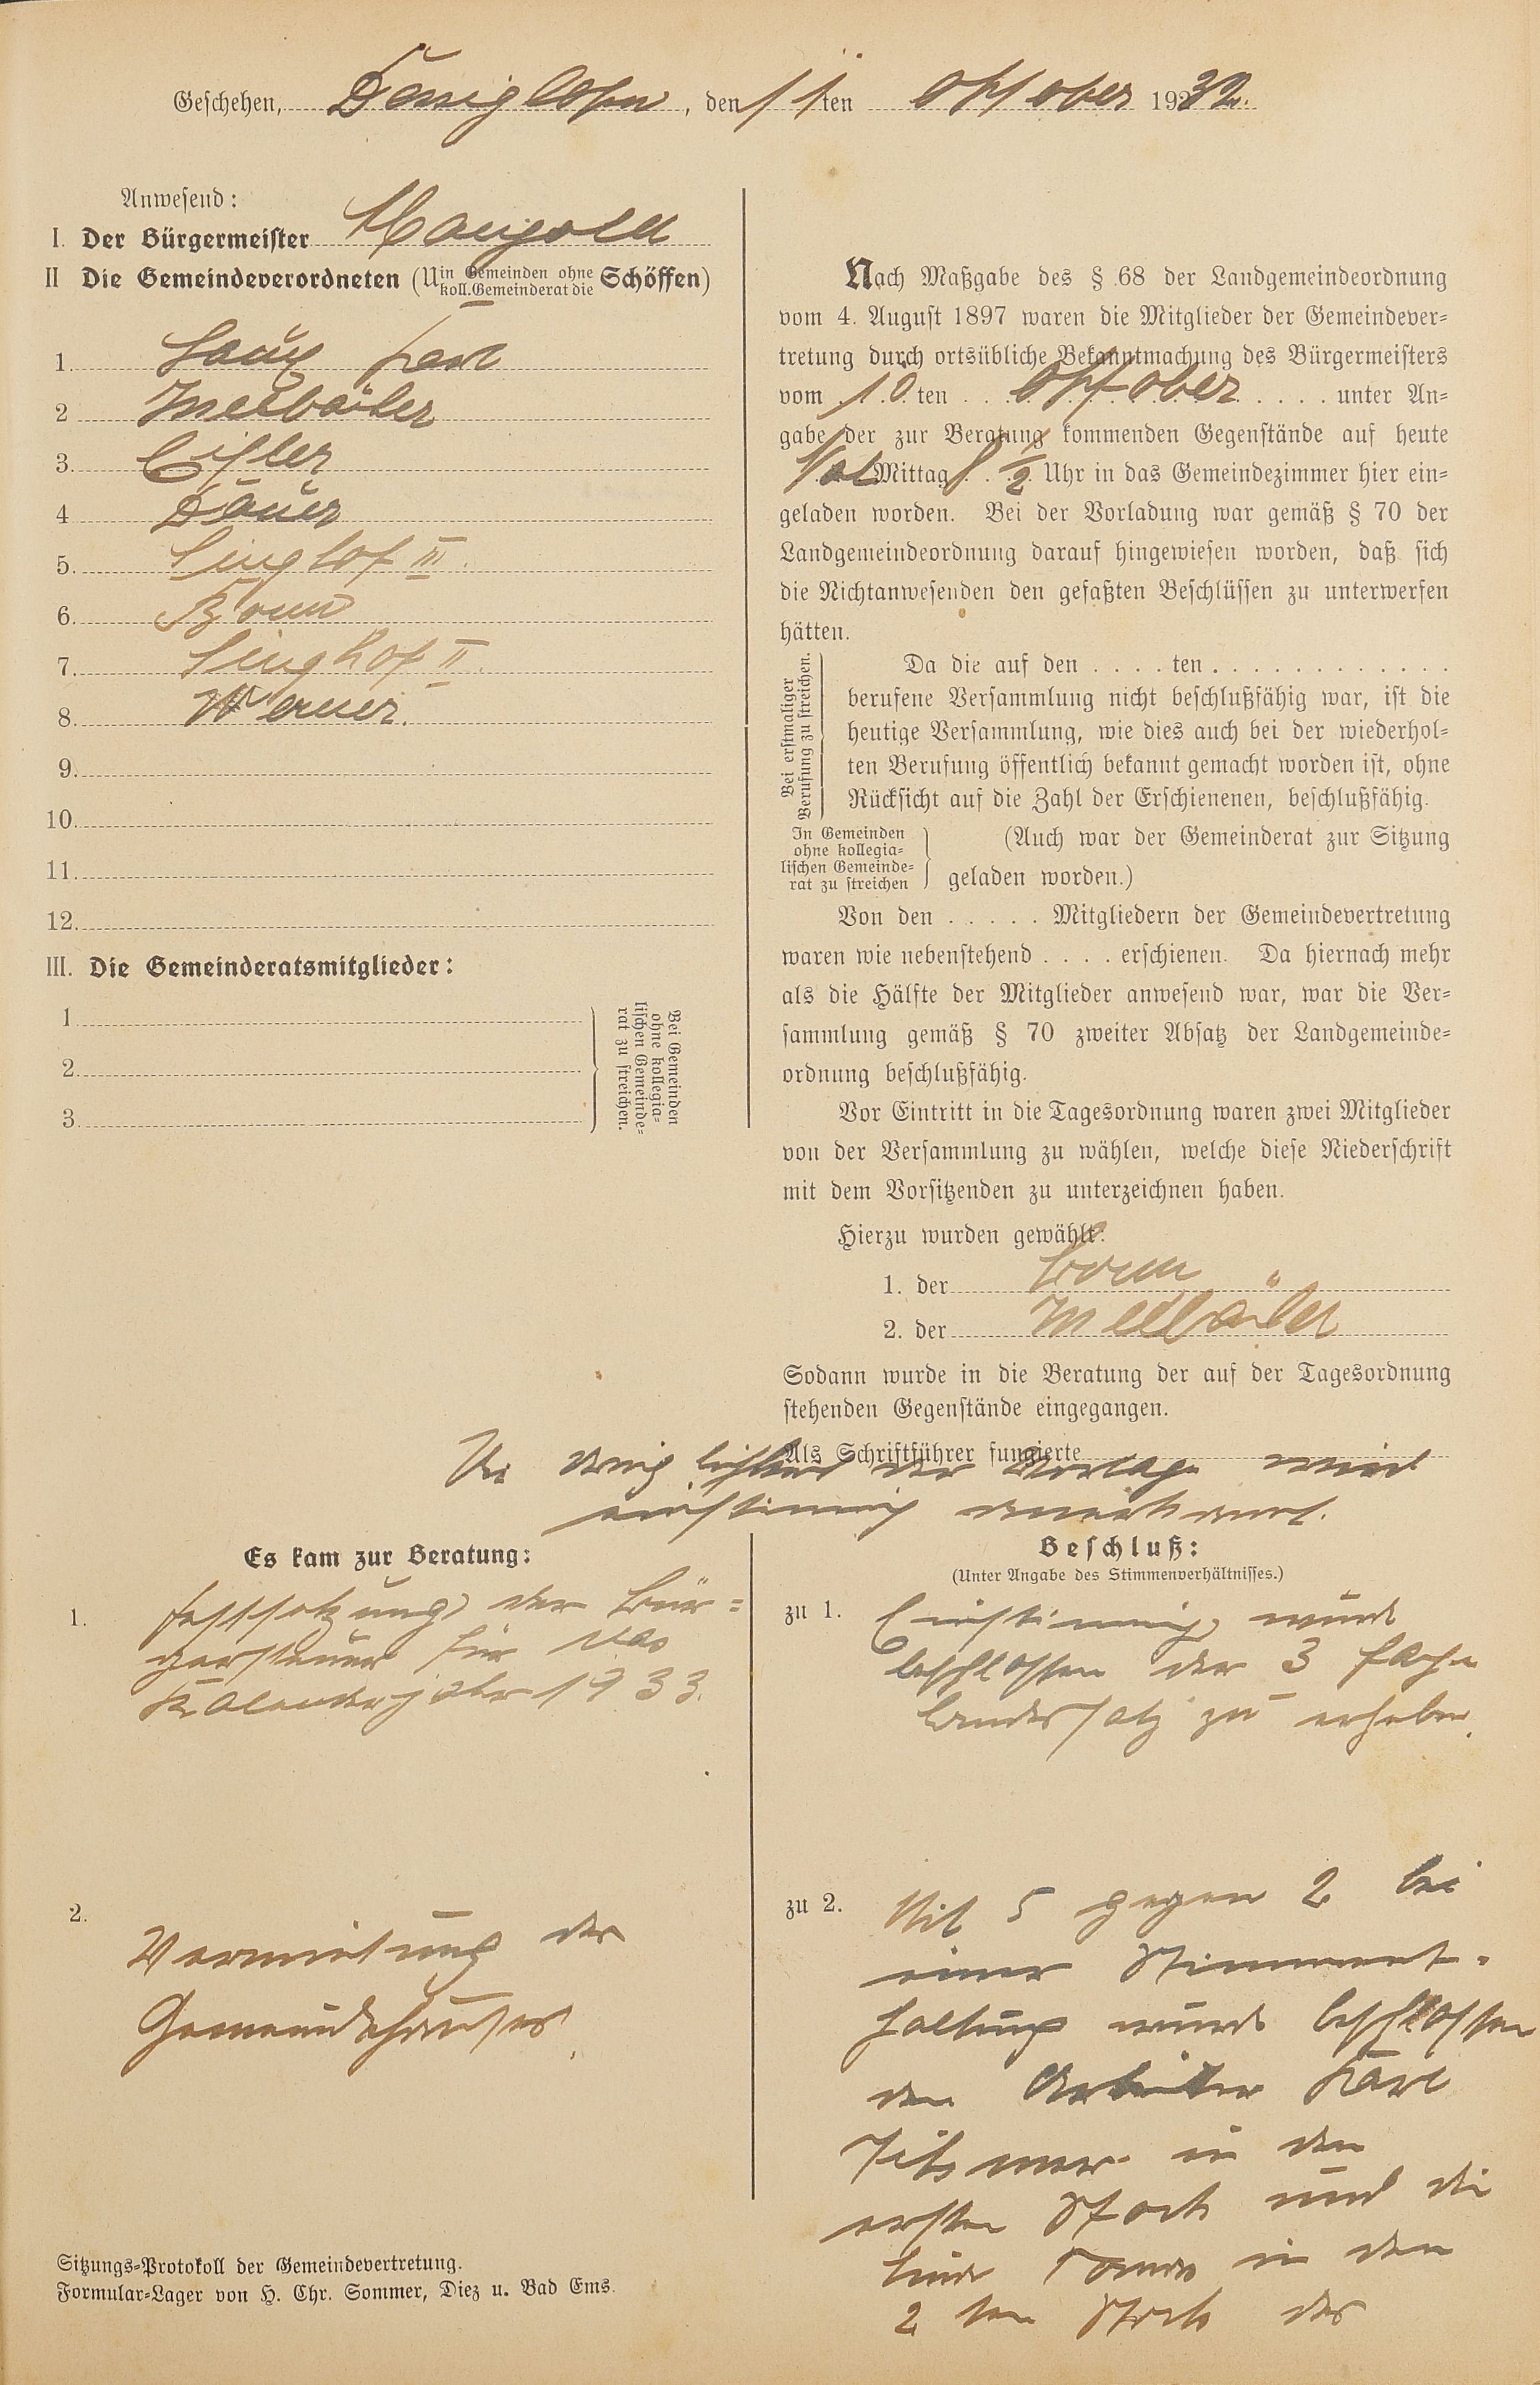 Geschehen, Königshofen, den 11ten Oktober 1932.
Anwesend:
I. Der Bürgermeister Mangold
II Die Gemeindeverordneten (U in Gemeinden ohne koll. Gemeinderat die Schöffen)
1.
2 Meilbäcker
3. Eisler
4 Dauer
5. Singhof III.
6. Bonn
7. Singhof II.
8. Werner.
9.
10.
11.
12.
III. Die Gemeinderatsmitglieder:
1
2.
3.
Bei Gemeinden
ohne kollegia-
lischen Gemeinde-
rat zu streichen.
Nach Maßgabe des § 68 der Landgemeindeordnung
vom 4. August 1897 waren die Mitglieder der Gemeindever-
tretung durch ortsübliche Bekanntmachung des Bürgermeisters
vom 10ten Oktober unter An-
gabe der zur Beratung kommenden Gegenstände auf heute
Mittag 8 1/2 Uhr in das Gemeindezimmer hier ein-
geladen worden. Bei der Vorladung war gemäß § 70 der
Landgemeindeordnung darauf hingewiesen worden, daß sich
die Nichtanwesenden den gefaßten Beschlüssen zu unterwerfen
hätten.
Bei erstmaliger
Berufung zu streichen.
Da die auf den . . . . ten . . . . . . . . . . . .
berufene Versammlung nicht beschlußfähig war, ist die
heutige Versammlung, wie dies auch bei der wiederhol-
ten Berufung öffentlich bekannt gemacht worden ist, ohne
Rücksicht auf die Zahl der Erschienenen, beschlußfähig.
In Gemeinden
ohne kollegia-
lischen Gemeinde-
rat zu streichen
(Auch war der Gemeinderat zur Sitzung
geladen worden.)
Von den . . . . . Mitgliedern der Gemeindevertretung
waren wie nebenstehend . . . . erschienen. Da hiernach mehr
als die Hälfte der Mitglieder anwesend war, war die Ver-
sammlung gemäß § 70 zweiter Absatz der Landgemeinde-
ordnung beschlußfähig.
Vor Eintritt in die Tagesordnung waren zwei Mitglieder
von der Versammlung zu wählen, welche diese Niederschrift
mit dem Vorsitzenden zu unterzeichnen haben.
Hierzu wurden gewählt:
1. der Bonn
2. der Meilbäcker
Sodann wurde in die Beratung der auf der Tagesordnung
stehenden Gegenstände eingegangen.
Als Schriftführer fungierte
Die Dringlichkeit der Vorlage wird
einstimmig anerkannt.
Es kam zur Beratung:
1. Festsetzung der Bür-
gersteuer für das
Kalenderjahr 1933.
2.
Vermietung des
Gemeindehauses.
Beschluß:
(Unter Angabe des Stimmenverhältnisses.)
zu 1. Einstimmig wurde
beschlossen der 3 fache
Landessatz zu erheben.
zu 2. Mit 5 gegen 2 bei
einer Stimment-
haltung wurde beschlossen
den Arbeiter Karl
in den
ersten Stock und die
in den
2 ten Stock des
Sitzungs-Protokoll der Gemeindevertretung.
Formular-Lager von H. Chr. Sommer, Diez u. Bad Ems.